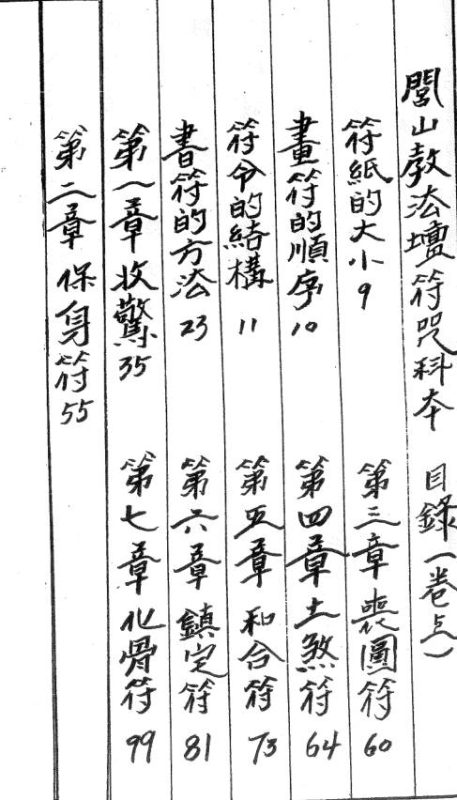 閭山教法壇符咒科本 目錄(卷)
符紙的大小 9
畫符的順序 10
符令的結構 11
書符的方法 23
第一章 收驚 35
第二章 保身符 55
第三章 喪圖符 60
第四章 土煞符 64
第五章 和合符 73
第六章 鎮宅符 81
第七章 化骨符 99